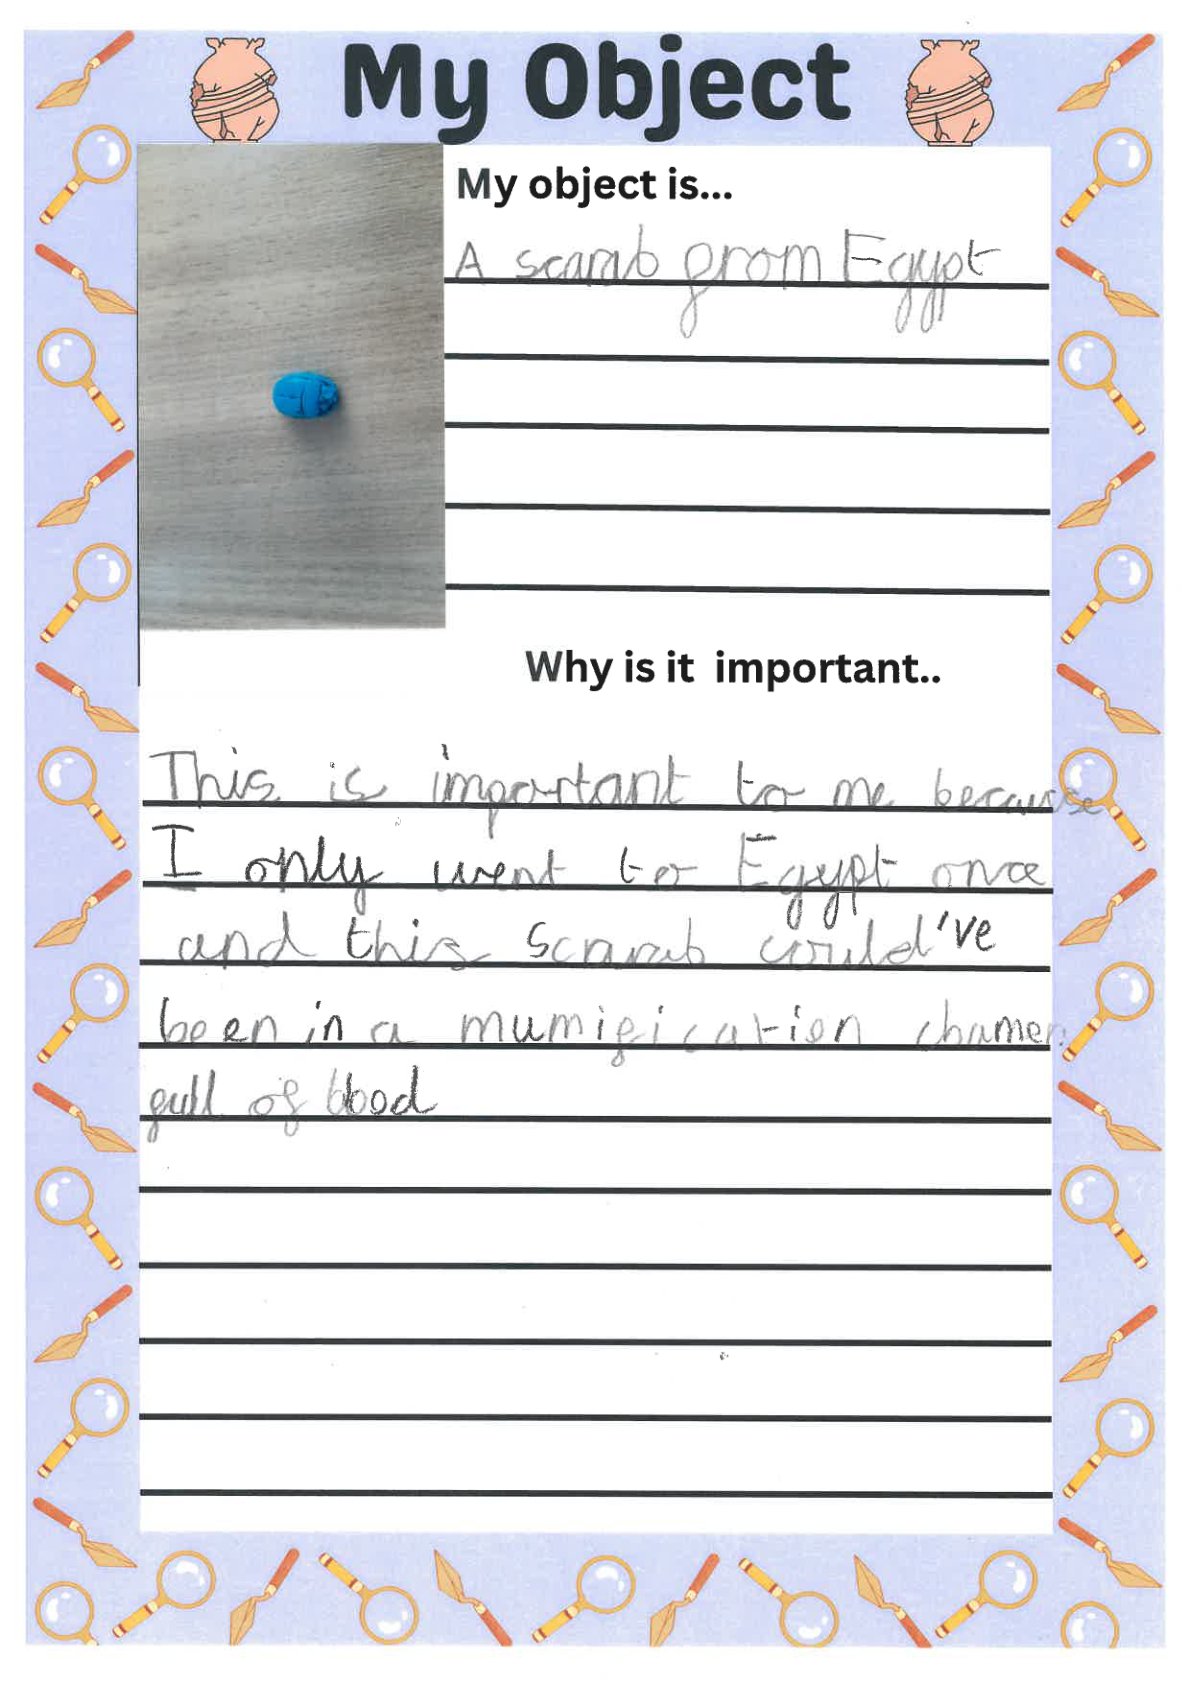 My Object
My object is...
A scarab from Egypt
Why is it important..
This is important to me because
I only went to Egypt once
and this scarab could've
been in a mumification chamer
full of blood